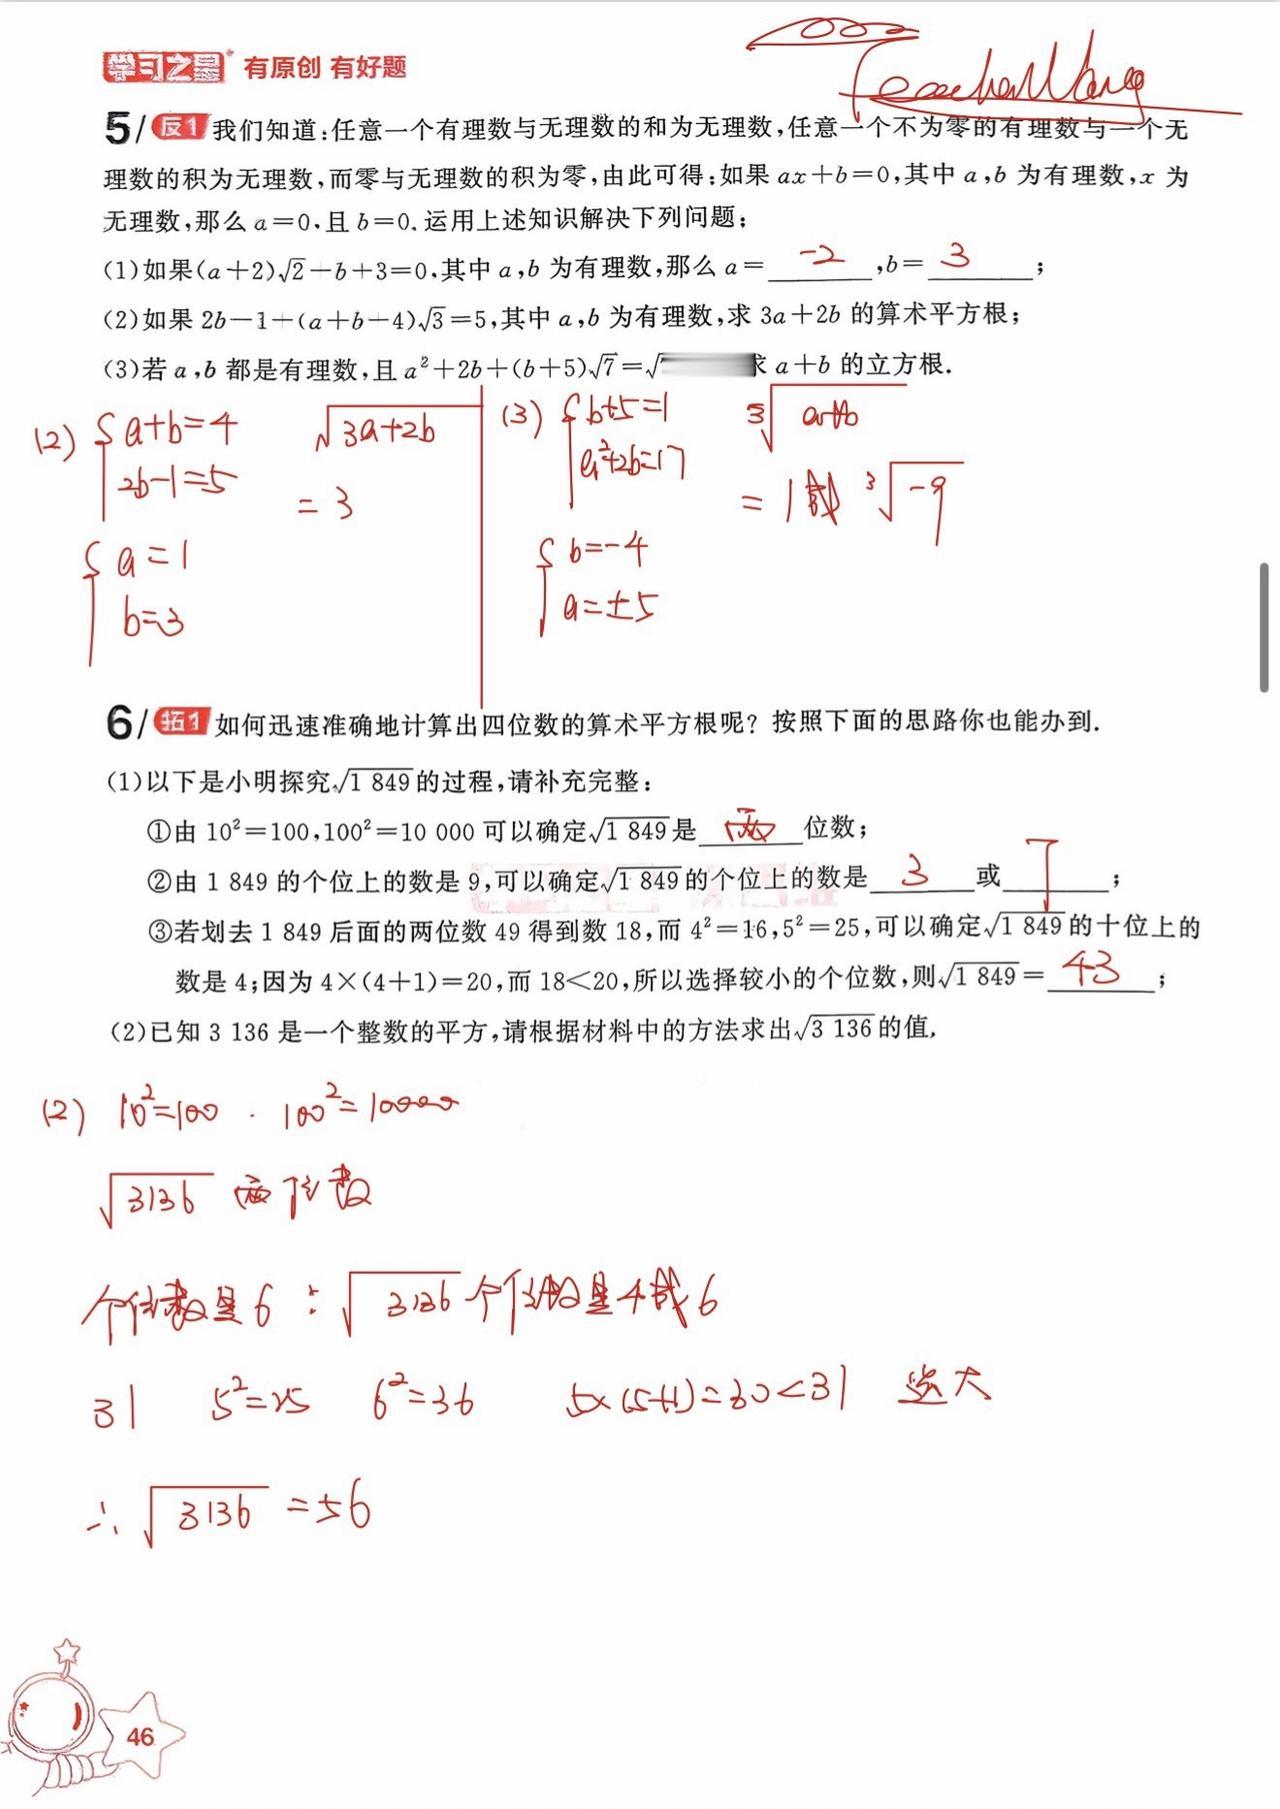 学习之星 有原创 有好题
Teacher Wang
5/ 反1 我们知道:任意一个有理数与无理数的和为无理数,任意一个不为零的有理数与一个无
理数的积为无理数,而零与无理数的积为零,由此可得:如果 ax+b=0,其中 a,b 为有理数,x 为
无理数,那么 a=0,且 b=0.运用上述知识解决下列问题:
(1)如果(a+2)√2-b+3=0,其中 a,b 为有理数,那么 a= -2 ,b= 3 ;
(2)如果 2b-1+(a+b-4)√3=5,其中 a,b 为有理数,求 3a+2b 的算术平方根;
(3)若 a,b 都是有理数,且 a²+2b+(b+5)√7=√ 求 a+b 的立方根.
(2) { a+b=4
2b-1=5
{ a=1
b=3
√3a+2b
=3
(3) { b+5=1
a²+2b=17
{ b=-4
a=±5
³√a+b
=1或 ³√-9
6/ 拓1 如何迅速准确地计算出四位数的算术平方根呢? 按照下面的思路你也能办到.
(1)以下是小明探究√1 849的过程,请补充完整:
①由 10²=100,100²=10 000 可以确定√1 849是 两 位数;
②由 1 849 的个位上的数是 9,可以确定√1 849的个位上的数是 3 或 7 ;
③若划去 1 849 后面的两位数 49 得到数 18,而 4²=16,5²=25,可以确定√1 849的十位上的
数是 4;因为 4×(4+1)=20,而 18<20,所以选择较小的个位数,则√1 849= 43 ;
(2)已知 3 136 是一个整数的平方,请根据材料中的方法求出√3 136的值.
(2) 10²=100 . 100²=10000
√3136 两位数
个位数是6 ∴ √3136 个位数是4或6
31 5²=25 6²=36 5×(5+1)=30<31 选大
∴ √3136 =56
46